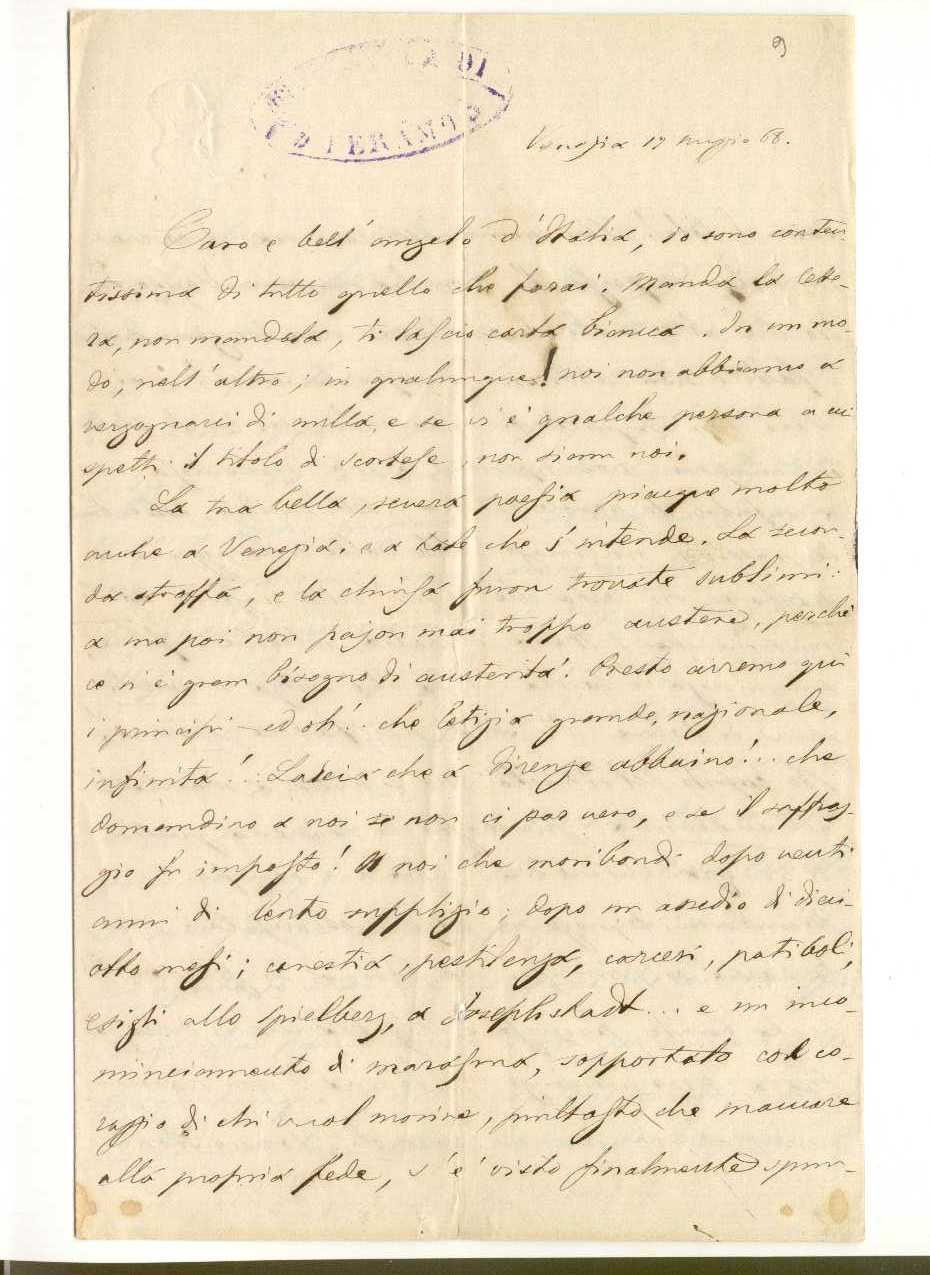 9
DI
TERAMO
Venezia 17 maggio 68.
Caro e bell' angelo d' Italia, io sono conten-
tissima di tutto quello che farai. Manda la lette-
ra, non mandala, ti lascio carta bianca. In un mo-
do, nell' altro; in qualunque! noi non abbiamo a
vergognarci di nulla, e se vi è qualche persona a cui
spetti il titolo di scortese, non siam noi.
La tua bella, severa poesia piacque molto
anche a Venezia: e a tale che s' intende. La secon-
da stroffa, e la chiusa furon trovate sublimi:
a me poi non pajon mai troppo austere, perchè
ce n' è gran bisogno di austerità! Presto avremo qui
i principi - ed oh!.. che letizia grande, nazionale,
infinita!.. Lascia che a Firenze abbaino!... che
domandino a noi se non ci par vero, e se il suffra-
gio fu imposto! A noi che moribondi dopo venti
anni di lento supplizio; dopo un assedio di dici-
otto mesi; carestia, pestilenza, carceri, patiboli,
esigli allo Spielberg, a Josephstadt... e un inco-
minciamento di marasma, sopportato col co-
raggio di chi vuol morire, piultosto che mancare
alla propria fede, s' è visto finalmente spun-